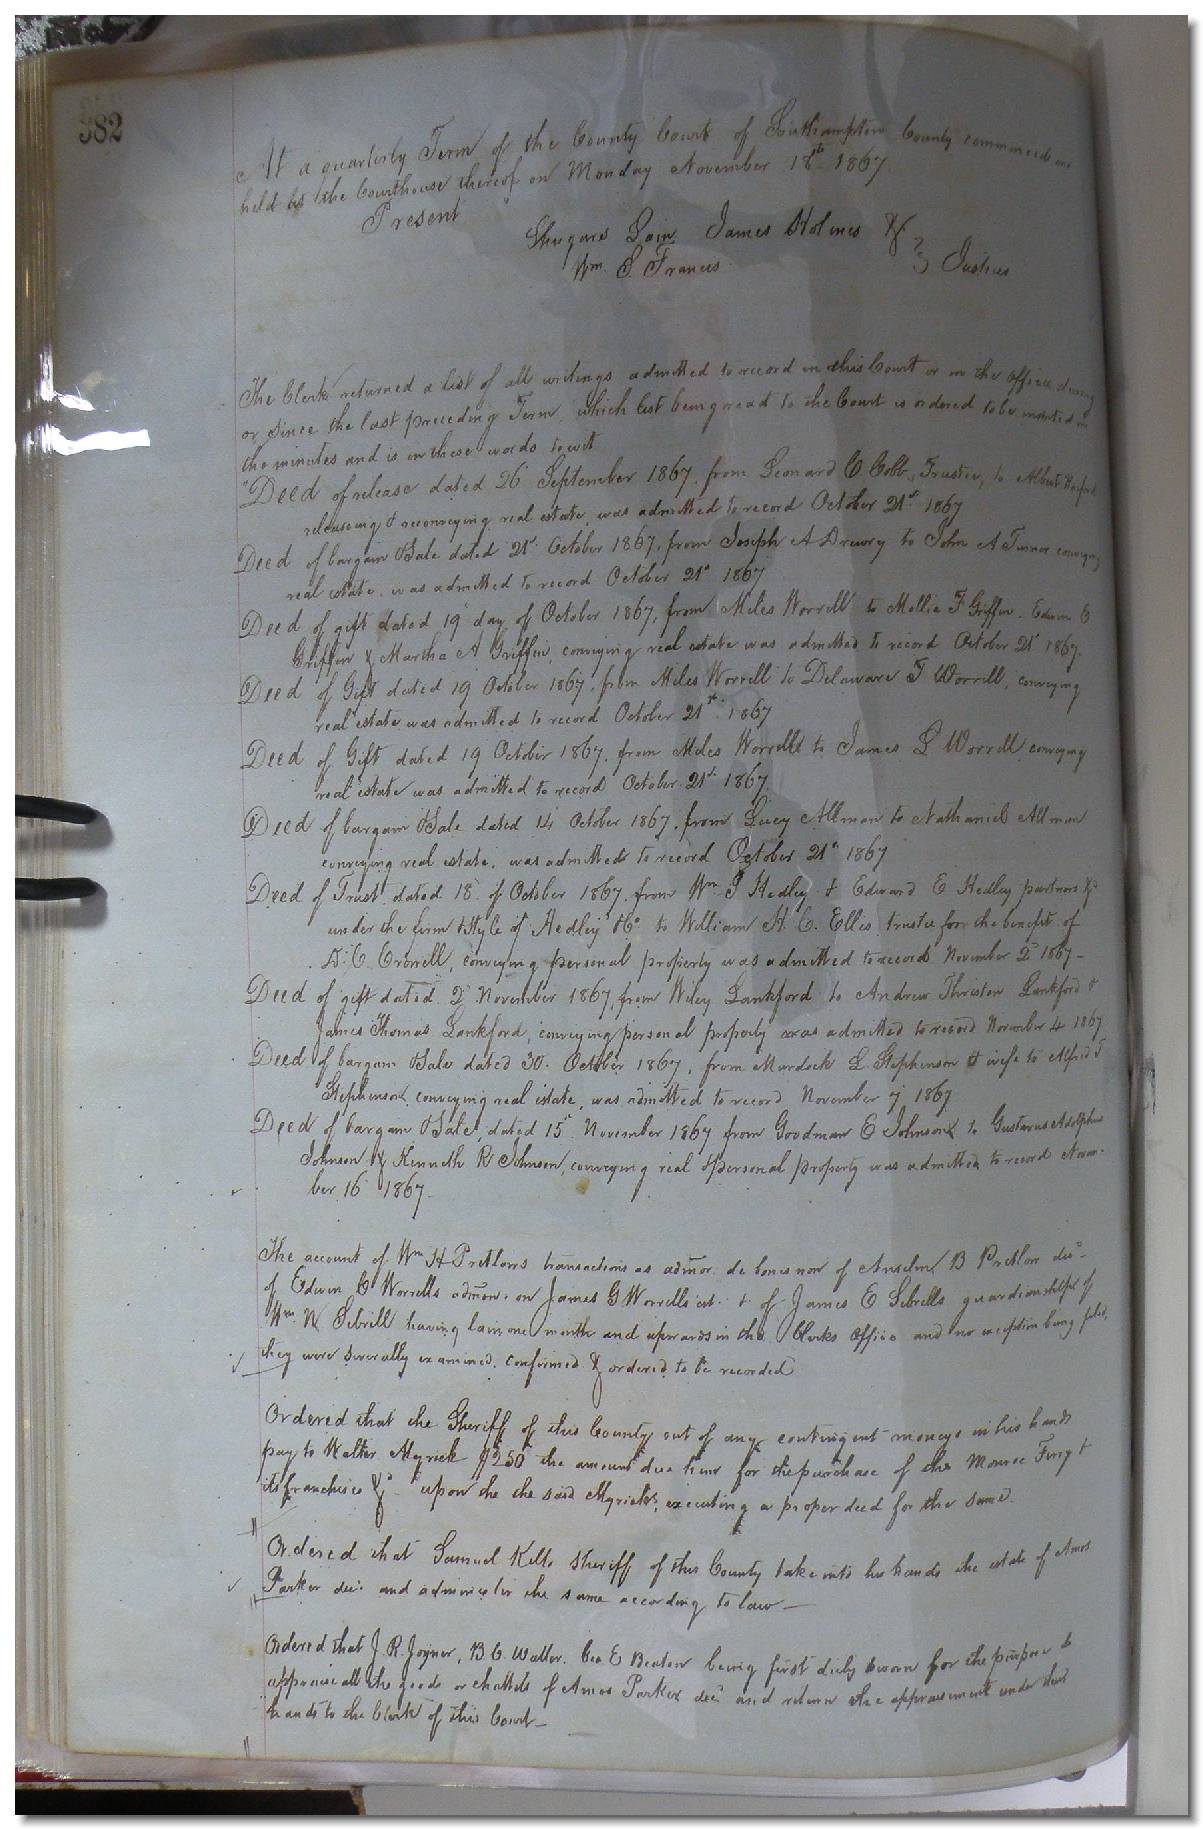 382
At a quarterly Term of the County Court of Southampton County commenced and
held at the Courthouse thereof on Monday November 18th 1867
Present
Shugars Lain, James Holmes &
Wm. S. Francis
Justices
The Clerk returned a list of all writings admitted to record in this Court or in the office during
or since the last preceding Term, which list being read to the Court is ordered to be inserted in
the minutes and is in these words to wit
"Deed of release dated 26 September 1867, from Leonard C Cobb, Trustee, to Albert
releasing & reconveying real estate, was admitted to record October 21st 1867
Deed of bargain & Sale dated 21st October 1867, from Joseph A Drewry to John A Turner conveying
real estate, was admitted to record October 21st 1867
Deed of gift dated 19th day of October 1867, from Miles Worrell to Mollie F Griffin, Edwin C
Griffin & Martha A Griffin, conveying real estate was admitted to record October 21st 1867.
Deed of Gift dated 19 October 1867, from Miles Worrell to Delaware F Worrell, conveying
real estate was admitted to record October 21st 1867
Deed of Gift dated 19 October 1867, from Miles Worrell to James L Worrell conveying
real estate was admitted to record October 21st 1867.
Deed of bargain & Sale dated 14 October 1867, from Lucy Allman to Nathaniel Allman
conveying real estate, was admitted to record October 21st 1867
Deed of Trust dated 18 of October 1867, from Wm J Hedley & Edward E Hedley partners &c
under the firm & style of Hedley & Co to William H. C. Ellis trustee for the benefit of
A. C. Worrell, conveying personal property was admitted to record November 2d 1867 -
Deed of gift dated 2d November 1867, from Wiley Lankford to Andrew Thriston Lankford &
James Thomas Lankford, conveying personal property was admitted to record November 4 1867
Deed of bargain & Sale dated 30. October 1867, from Murdock L Stephenson & wife to Alfred J
Stephenson, conveying real estate, was admitted to record November 7 1867
Deed of bargain & Sale, dated 15th November 1867 from Goodman E Johnson to Gustavus Adolphus
Johnson & Kenneth R Johnson, conveying real & personal property was admitted to record Novem-
ber 16 1867.
The account of Wm H Pretlows transactions as admor. de bonis non of Anselm B Pretlow decd.
of Edwin C Worrells admon. on James G Worrells est. & of James E Sebrells guardianship of
Wm. N Sebrell having lain one month and upwards in the Clerks Office and no exception being filed,
they were severally examined, confirmed & ordered to be recorded
Ordered that the Sheriff of this County out of any contingent moneys in his hands
pay to Walter Myrick $250 the amount due him for the purchase of the Monroe Ferry &
its franchise &c - upon the the said Myrick executing a proper deed for the same.
Ordered that Samuel Kello Sheriff of this County take into his hands the estate of Amos
Parker decd. and administer the same according to law -
Ordered that J. R. Joyner, B. C. Waller, Geo E Beaton being first duly sworn for the purpose do
appraise all the goods or chattels of Amos Parker decd and return the appraisement under their
hands to the Clerk of this Court -